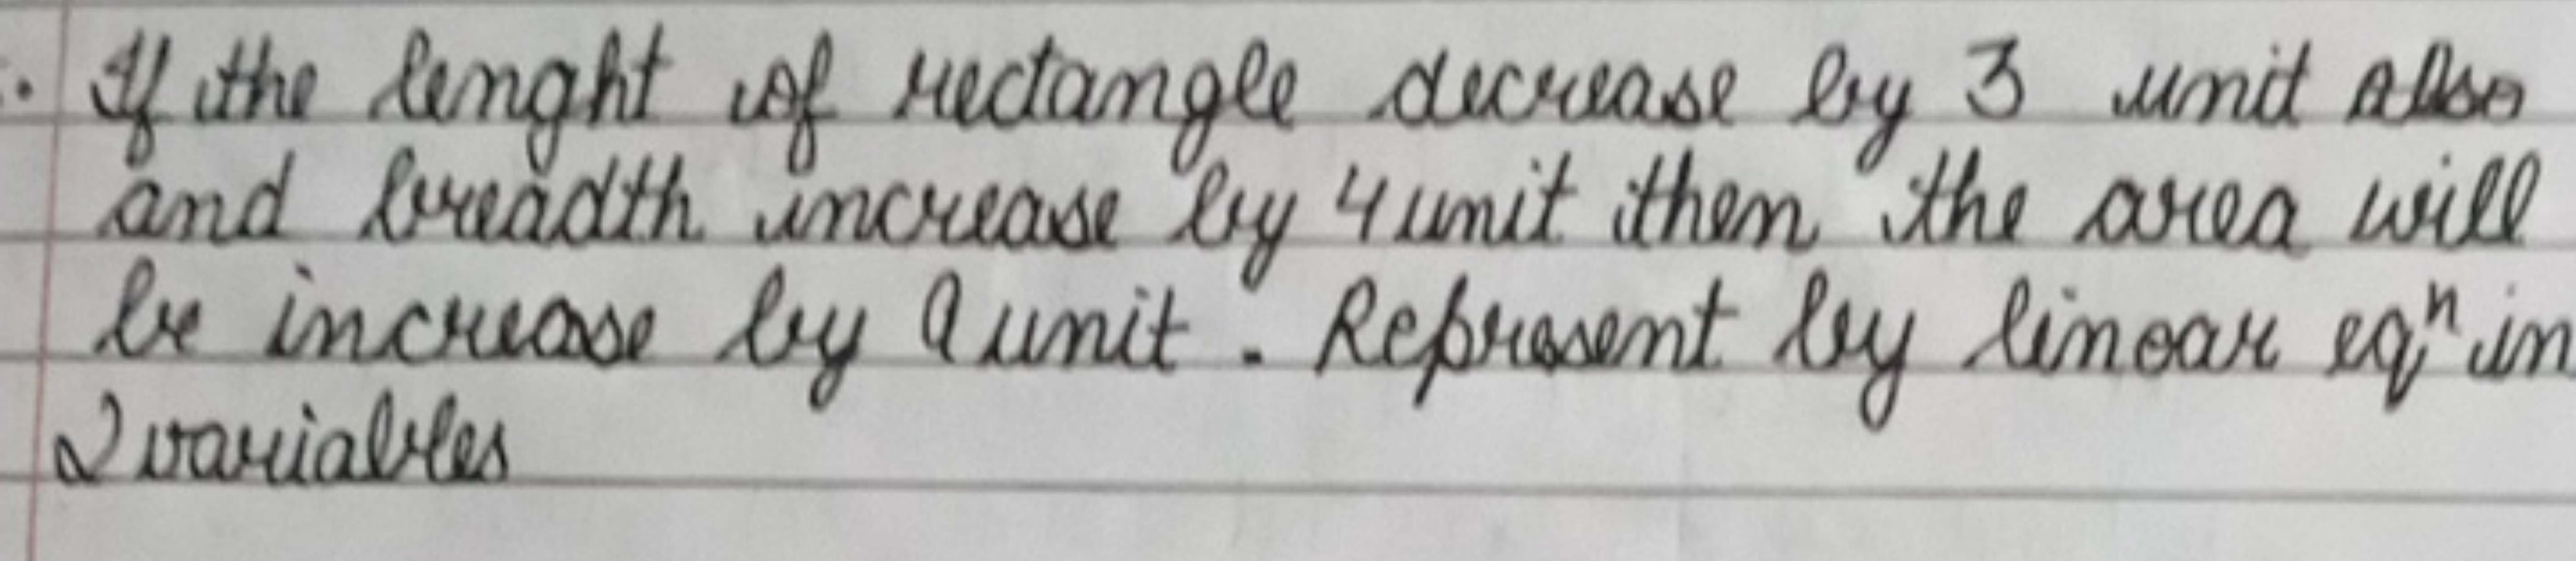 . If the lenght of rectangle decrease by 3 unit also
and breadth increase by 4 unit then the area will
be increase by 9 unit . Represent by linear eqⁿ in
2 variables